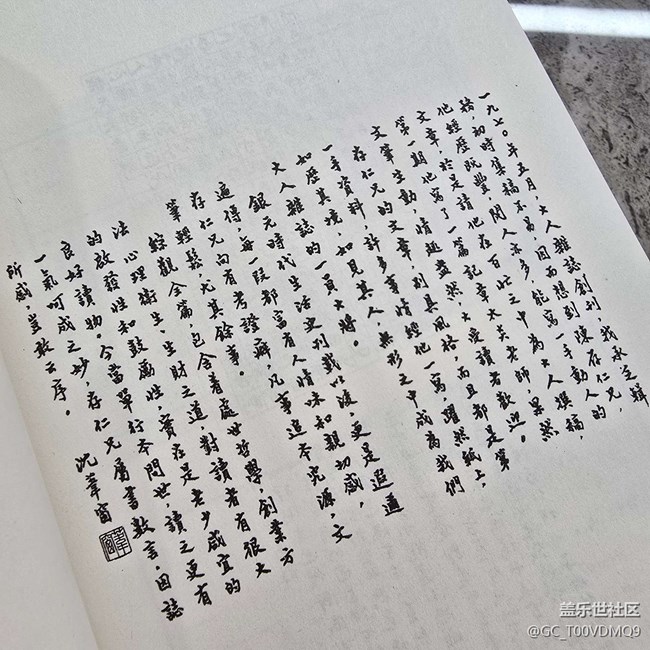 一九七〇年五月，大人雜誌創刊，我承乏輯
務，初時集稿不易，因而想到陳存仁兄，
他經歷既豐，閱人亦多，能寫一手動人的
文章，於是請他在百忙之中為大人撰稿，
第一期他寫了一篇記章太炎老師，果然
文筆生動，情趣盎然，大受讀者歡迎。第
存仁兄的文章，別具風格，而且都是第
一手資料，許多事情經他一寫，躍然紙上，
如歷其境，如見其人，無形之中成為我們
大人雜誌的一員大將。
銀元時代生活史刊載以後，更是遐邇
遍傳，每一段都富有人情味和親切感，
存仁兄向有考證癖，凡事追本究源，文
筆輕鬆，尤其餘事。
綜觀全篇，包含着處世哲學，創業方
法，心理衛生，生財之道，對讀者有很大
的啟發性和鼓勵性，實在是老少咸宜的
良好讀物。今當單行本問世，讀之更有
一氣呵成之妙，存仁兄屬書數言，因誌
所感，豈敢云序。
沈葦窗
葦窗
盖乐世社区
@GC_T00VDMQ9